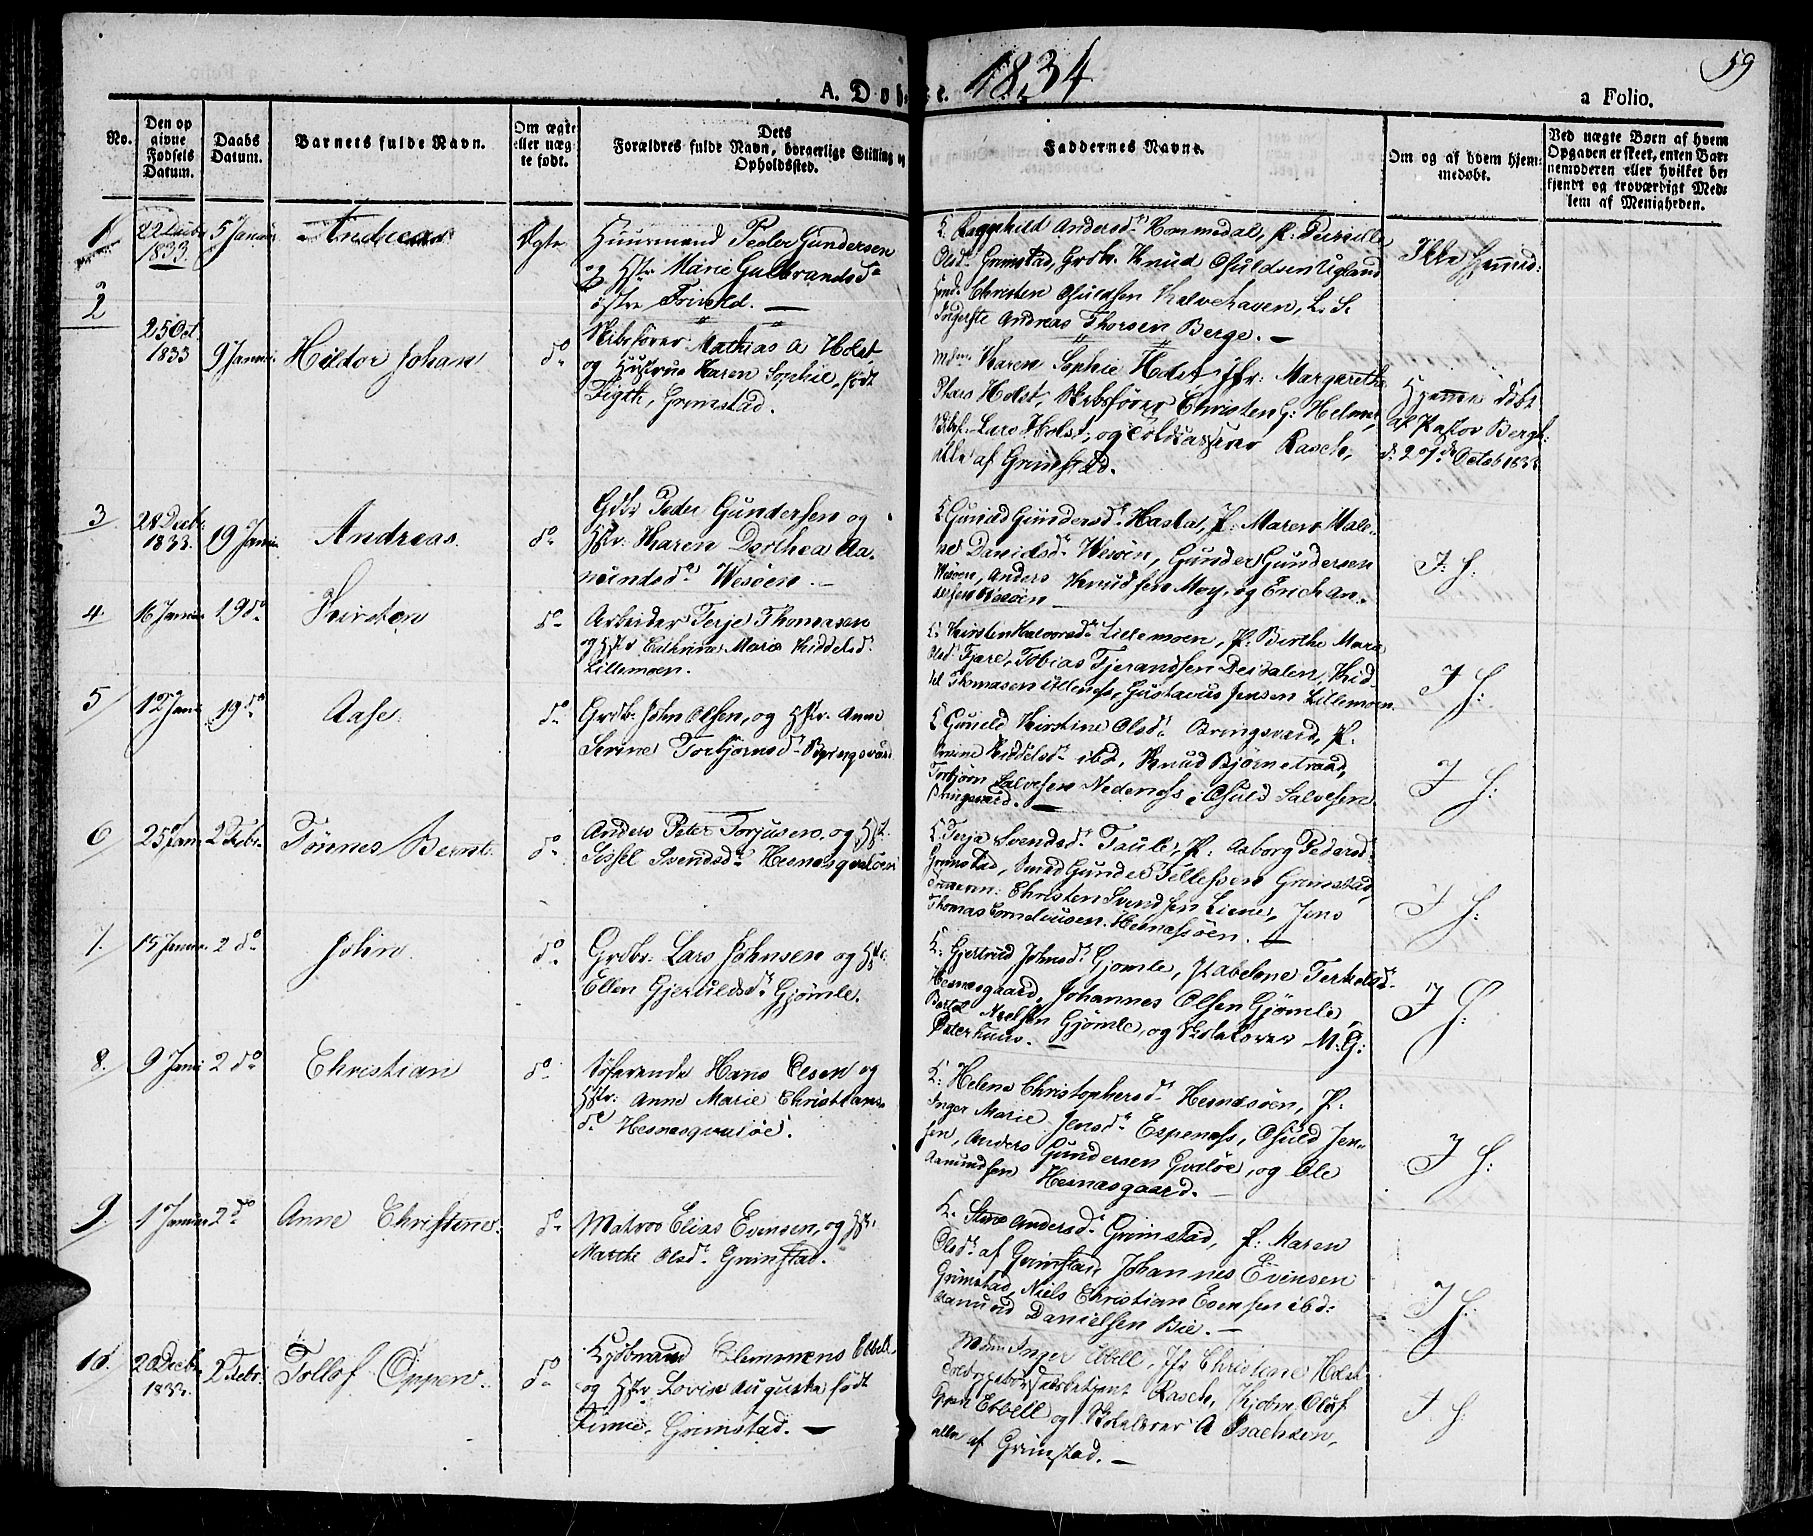 A. Døbte. 1834
a Folio.
59
No.
Den opgivne Fødsels Datum.
Daabs Datum.
Barnets fulde Navn.
Om ægte eller uægte født.
Dets Forældres fulde Navn, borgerlige Stilling og Opholdssted.
Faddernes Navne.
Om og af hvem hjemmedøbt.
Ved uægte Børn af hvem Opgaven er skeet, enten Barnemoderen eller hvilket bekjendt og troværdigt Medlem af Menigheden.
1
22 Decbr 1833.
5 Januar
Andreas
Ægte
Huusmand Peder Gundersen
og Hstr Marie Gulbrandsdr
østre Frivold. —
K. Ragnhild Andersdr Hommedal, P.
Olsdr Grimstad, Grdbr. Knud Osuldsen Ugland
Christen Osuldsen Kalvehaven, L. S.
Andreas Thorsen Berge. —
Ikke Hjemmed:
2
25 Oct. 1833
9 Januar
Haldor Johan
do
Skibsfører Mathias A Holst
og Hustrue Karen Sophie, født
Figth, Grimstad.
Mdm Karen Sophie Holst, Jfr: Margarethe
Holst, Skibsfører Christen G: Helmer,
Skbsf. Lars Holst, og Toldcasserer Rasch,
alle af Grimstad.
Hjemme døbt
af Pastor Bergh
d. 27de Octob 1833
3
28 Decbr. 1833.
19 Januar
Andreas.
do
Gdbr Peder Gundersen og
Hstr: Karen Dorthea Aa-
mundsdr Wesøen. —
K Gunild Gundersdr Hasla, P. Maren Male-
ne Danielsdr Wesøen, Gunder Gundersen
Wesøen, Anders Knudsen Moy, og Erich An-
dersen Wesøen
I: H:
4
16 Januar
19 do
Kirsten
do
Arbeider Terje Thomasen
og Hstr Cathrine Marie Kiddelsdr
Lillemoen.
K. Kirsten Halvorsdr Lillemoen, P. Birthe Marie
Olsdr Fjære, Tobias Tjerandsen Deisalen, Kid-
del Thomasen Allness, Gustavus Jensen Lillemoen.
I H:
5
12 Janr
19 do
Aase.
do
Grdbr. John Olsen, og Hstr. Anne
Serine Torbjørnsdr Bringsværd
K Gunild Kirstine Olsdr Bringsværd, P.
Kiddelsdr ibd, Knud Bjørnetraae,
Torbjørn Salvesen Nedeness, Osuld Salvesen
Bringsværd. —
I H:
6
25 Jan
2 Febr.
Tønnes Bernt.
do
Anders Peter Torjusen, og Hst.
Sissel Svendsdr Hesnæsqvaløen
K. Terja Svendsdr Taule, P. Aaborg Pedersdr
Grimstad, Smed Gunder Tellefsen Grimstad,
Christen Svendsen Liene, Jens
Thomas Corneliusen Hesnessøen. —
I H:
7.
15 Januar.
2 do
John.
do
Grdbr: Lars Johnsen og Hstr:
Ellen Gjeruldsdr Gjømle.
K: Gjertrud Johnsdr Gjømle, P. Abelone Terkelsdr
Hesnesgaard, Johannes Olsen Gjømle,
Berte Nielsen Gjømle, og Skolelærer M: G:
Østerhuus. —
I H:
8.
9 Janr
2 do
Christian
do
Søfarende Hans Olsen og
Hstr: Anne Marie Christians-
dr Hesnæsqvaløe.
K: Helene Christophersdr Hesnæsøen, P:
Inger Marie Jensdr Espeness, Osuld Jen-
sen, Anders Gundersen Qvaløe, og Ole
Aamundsen Hesnæsgaard. —
I H:
9
1 Januar
2 do
Anne Christine.
do
Matros Elias Evensen, og Hst.
Marthe Olsdr Grimstad.
K. Andersdr Grimstad, P. Maren
Olsdr af Grimstad, Johannes Evensen
Grimstad, Niels Christian Evensen ibd.
Aamund Danielsen Bie. —
I H:
10.
20 Decbr 1833.
2 Febr.
Tollof Oppen.
do
Kjøbmand Clemmens Ebbell
og Hstr Lovise Augusta, født
Grimstad. —
Mdm Inger Ebbell, Jfr Christine Holst
Rasch, Kjøbm. Oluf
Ebbell og Skolelærer A Isachsen,
alle af Grimstad. —
I. H: